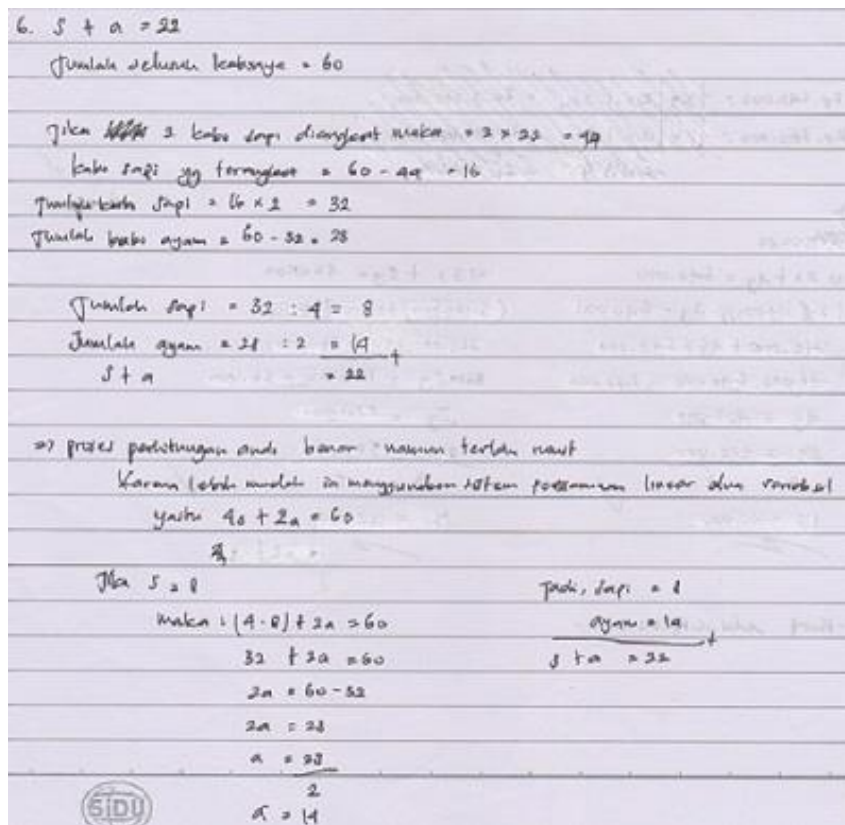 6. S + a = 22
Jumlah seluruh kakinya = 60
Jika 2 kaki sapi diangkat maka = 2 × 22 = 44
kaki sapi yg terangkat = 60 - 44 = 16
Jumlah kaki sapi = 16 × 2 = 32
Jumlah kaki ayam = 60 - 32 = 28
Jumlah sapi = 32 : 4 = 8
Jumlah ayam = 28 : 2 = 14 +
S + a = 22
=> proses perhitungan anda benar namun terlalu rumit
Karena lebih mudah menggunakan sistem persamaan linear dua variabel
yaitu 4s + 2a = 60
Jika S = 8
maka : (4·8) + 2a = 60
32 + 2a = 60
2a = 60 - 32
2a = 28
a = 28
2
a = 14
Jadi, sapi = 8
ayam = 14 +
s + a = 22
SIDU